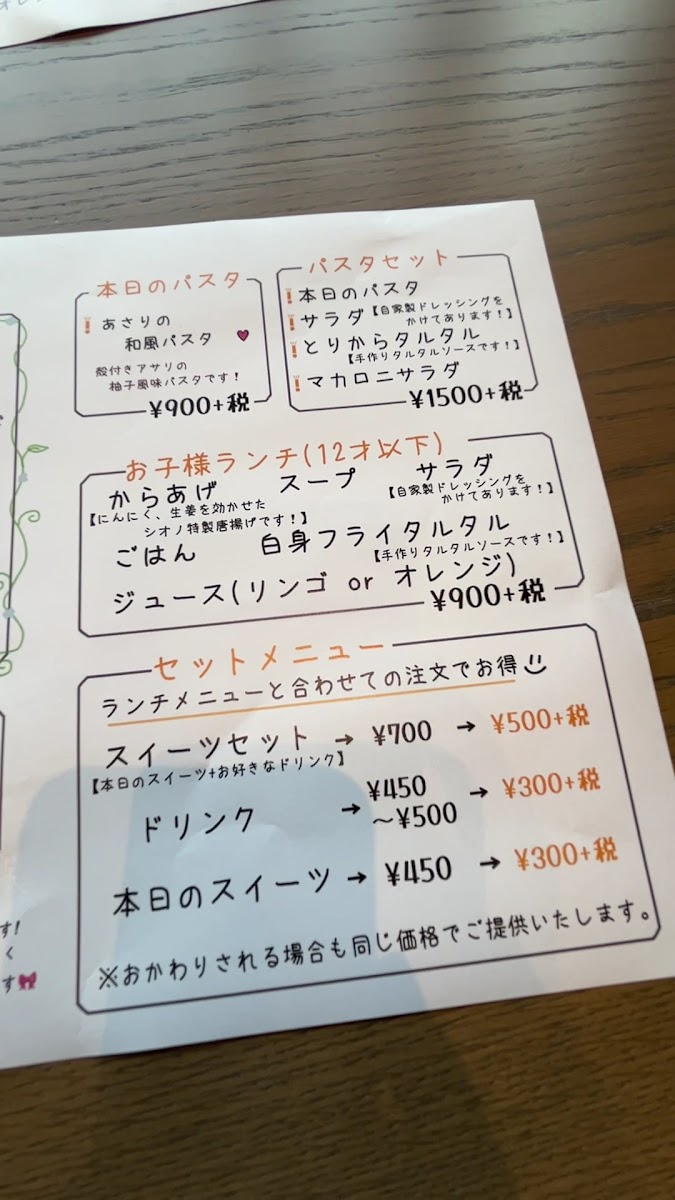 本日のパスタ
あさりの
和風パスタ
殻付きアサリの
柚子風味パスタです！
¥900+税
パスタセット
本日のパスタ
サラダ【自家製ドレッシングを
かけてあります！】
とりからタルタル
【手作りタルタルソースです！】
マカロニサラダ
¥1500+税
お子様ランチ(12才以下)
からあげ スープ サラダ
【にんにく、生姜を効かせた
シオノ特製唐揚げです！】
【自家製ドレッシングを
かけてあります！】
ごはん 白身フライタルタル
【手作りタルタルソースです！】
ジュース(リンゴ or オレンジ)
¥900+税
セットメニュー
ランチメニューと合わせての注文でお得
スイーツセット → ¥700 → ¥500+税
【本日のスイーツ+お好きなドリンク】
ドリンク → ¥450
～¥500 → ¥300+税
本日のスイーツ → ¥450 → ¥300+税
※おかわりされる場合も同じ価格でご提供いたします。
す!
く
す